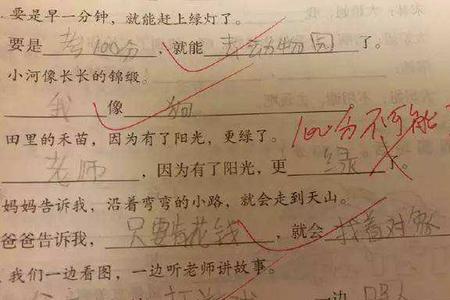 要是早一分钟，就能赶上绿灯了。
要是考100分，就能去动物园了。
小河像长长的锦缎。
我像狗
田里的禾苗，因为有了阳光，更绿了。
100分不可能
老师，因为有了阳光，更绿了。
妈妈告诉我，沿着弯弯的小路，就会走到天山。
爸爸告诉我，只要有花钱，就会找着对象
我们一边看图，一边听老师讲故事。
一边